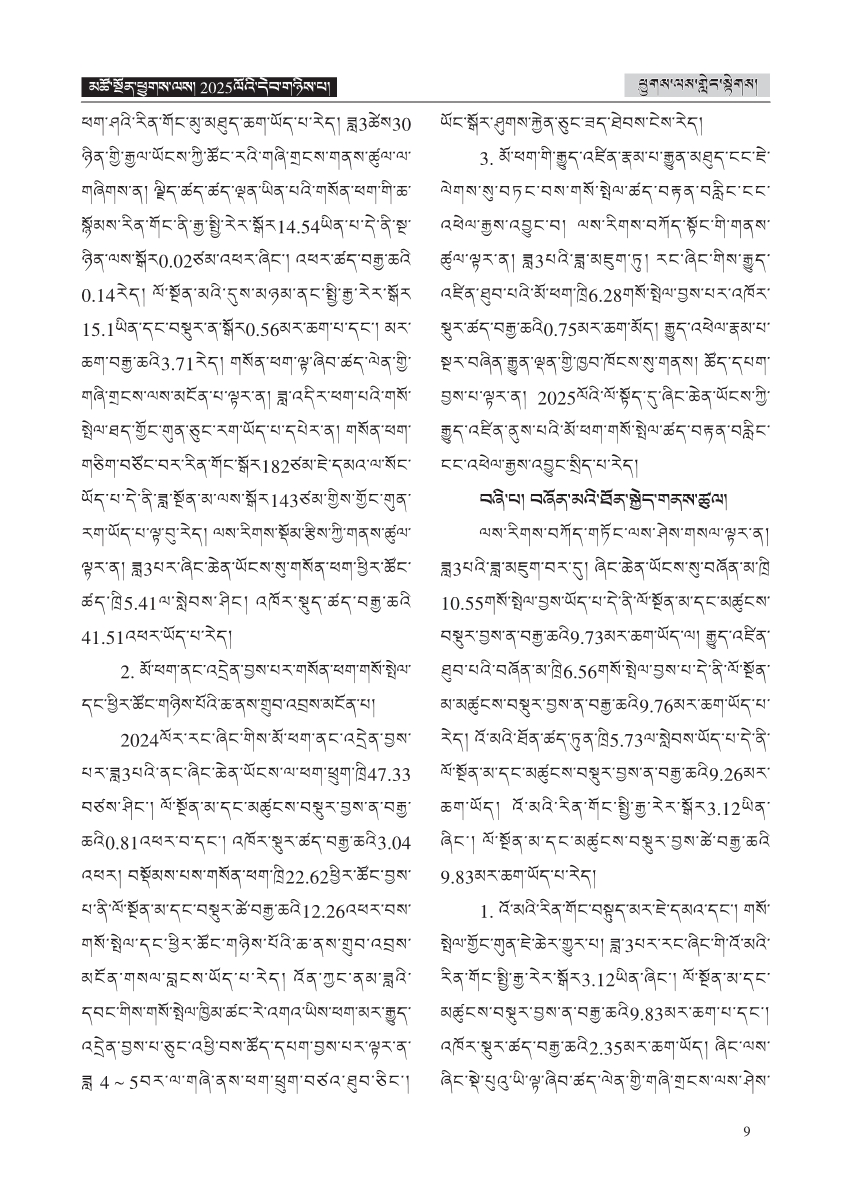 མཚོ་སྔོན་ཕྱུགས་ལས། 2025ལོའི་དེབ་གཉིས་པ།
ཕྱུགས་ལས་གླེང་སྟེགས།
ཕག་ཤའི་རིན་གོང་མུ་མཐུད་ཆག་ཡོད་པ་རེད། ཟླ3ཚེས30
ཉིན་གྱི་རྒྱལ་ཡོངས་ཀྱི་ཚོང་རའི་གཞི་གྲངས་གནས་ཚུལ་ལ་
གཞིགས་ན། ལྗིད་ཚད་ཚད་ལྡན་ཡིན་པའི་གསོན་ཕག་གི་ཆ་
སྙོམས་རིན་གོང་ནི་རྒྱ་སྤྱི་རེར་སྒོར14.54ཡིན་པ་དེ་ནི་སྔ་
ཉིན་ལས་སྒོར0.02ཙམ་འཕར་ཞིང་། འཕར་ཚད་བརྒྱ་ཆའི
0.14རེད། ལོ་སྔོན་མའི་དུས་མཉམ་ནང་སྤྱི་རྒྱ་རེར་སྒོར
15.1ཡིན་དང་བསྡུར་ན་སྒོར0.56མར་ཆག་པ་དང་། མར་
ཆག་བརྒྱ་ཆའི3.71རེད། གསོན་ཕག་ལྟ་ཞིབ་ཚད་ལེན་གྱི་
གཞི་གྲངས་ལས་མངོན་པ་ལྟར་ན། ཟླ་འདིར་ཕག་པའི་གསོ་
སྤེལ་ཐད་གྱོང་གུན་ཅུང་རག་ཡོད་པ་དཔེར་ན། གསོན་ཕག་
གཅིག་བཙོང་བར་རིན་གོང་སྒོར182ཙམ་ཇེ་དམའ་ལ་སོང་
ཡོད་པ་དེ་ནི་ཟླ་སྔོན་མ་ལས་སྒོར143ཙམ་གྱིས་གྱོང་གུན་
རག་ཡོད་པ་ལྟ་བུ་རེད། ལས་རིགས་སྡོམ་རྩིས་ཀྱི་གནས་ཚུལ་
ལྟར་ན། ཟླ3པར་ཞིང་ཆེན་ཡོངས་སུ་གསོན་ཕག་ཕྱིར་ཚོང་
ཚད་ཁྲི5.41ལ་སླེབས་ཤིང་། འཁོར་སྡུད་ཚད་བརྒྱ་ཆའི
41.51འཕར་ཡོད་པ་རེད།
2. མོ་ཕག་ནང་འདྲེན་བྱས་པར་གསོན་ཕག་གསོ་སྤེལ་
དང་ཕྱིར་ཚོང་གཉིས་པོའི་ཆ་ནས་གྲུབ་འབྲས་མངོན་པ།
2024ལོར་རང་ཞིང་གིས་མོ་ཕག་ནང་འདྲེན་བྱས་
པར་ཟླ3པའི་ནང་ཞིང་ཆེན་ཡོངས་ལ་ཕག་ཕྲུག་ཁྲི47.33
བཙས་ཤིང་། ལོ་སྔོན་མ་དང་མཚུངས་བསྡུར་བྱས་ན་བརྒྱ་
ཆའི0.81འཕར་བ་དང་། འཁོར་སྡུར་ཚད་བརྒྱ་ཆའི3.04
འཕར། བསྡོམས་པས་གསོན་ཕག་ཁྲི22.62ཕྱིར་ཚོང་བྱས་
པ་ནི་ལོ་སྔོན་མ་དང་བསྡུར་ཚེ་བརྒྱ་ཆའི12.26འཕར་བས་
གསོ་སྤེལ་དང་ཕྱིར་ཚོང་གཉིས་པོའི་ཆ་ནས་གྲུབ་འབྲས་
མངོན་གསལ་བླངས་ཡོད་པ་རེད། འོན་ཀྱང་ནམ་ཟླའི་
དབང་གིས་གསོ་སྤེལ་ཁྱིམ་ཚང་རེ་འགའ་ཡིས་ཕག་མར་རྒྱུད་
འདྲེན་བྱས་པ་ཅུང་འཕྱི་བས་ཚོད་དཔག་བྱས་པར་ལྟར་ན་
ཟླ 4 ~ 5བར་ལ་གཞི་ནས་ཕག་ཕྲུག་བཙའ་ཐུབ་ཅིང་།
ཡོང་སྒོར་ཤུགས་རྐྱེན་ཅུང་ཟད་ཐེབས་ངེས་རེད།
3. མོ་ཕག་གི་རྒྱུད་འཛིན་རྣམ་པ་རྒྱུན་མཐུད་ངང་ཇེ་
ལེགས་སུ་བཏང་བས་གསོ་སྤེལ་ཚད་བརྟན་བརླིང་ངང་
འཕེལ་རྒྱས་འབྱུང་བ། ལས་རིགས་བཀོད་སྟོང་གི་གནས་
ཚུལ་ལྟར་ན། ཟླ3པའི་ཟླ་མཇུག་ཏུ། རང་ཞིང་གིས་རྒྱུད་
འཛིན་ཐུབ་པའི་མོ་ཕག་ཁྲི6.28གསོ་སྤེལ་བྱས་པར་འཁོར་
སྡུར་ཚད་བརྒྱ་ཆའི0.75མར་ཆག་མོད། རྒྱུད་འཕེལ་རྣམ་པ་
སྔར་བཞིན་རྒྱུན་ལྡན་གྱི་ཁྱབ་ཁོངས་སུ་གནས། ཚོད་དཔག་
བྱས་པ་ལྟར་ན། 2025ལོའི་ལོ་སྟོད་དུ་ཞིང་ཆེན་ཡོངས་ཀྱི་
རྒྱུད་འཛིན་ནུས་པའི་མོ་ཕག་གསོ་སྤེལ་ཚད་བརྟན་བརླིང་
ངང་འཕེལ་རྒྱས་འབྱུང་སྲིད་པ་རེད།
བཞི་པ། བཞོན་མའི་ཐོན་སྐྱེད་གནས་ཚུལ།
ལས་རིགས་བཀོད་གཏོང་ལས་ཤེས་གསལ་ལྟར་ན།
ཟླ3པའི་ཟླ་མཇུག་བར་དུ། ཞིང་ཆེན་ཡོངས་སུ་བཞོན་མ་ཁྲི
10.55གསོ་སྤེལ་བྱས་ཡོད་པ་དེ་ནི་ལོ་སྔོན་མ་དང་མཚུངས་
བསྡུར་བྱས་ན་བརྒྱ་ཆའི9.73མར་ཆག་ཡོད་ལ། རྒྱུད་འཛིན་
ཐུབ་པའི་བཞོན་མ་ཁྲི6.56གསོ་སྤེལ་བྱས་པ་དེ་ནི་ལོ་སྔོན་
མ་མཚུངས་བསྡུར་བྱས་ན་བརྒྱ་ཆའི9.76མར་ཆག་ཡོད་པ་
རེད། འོ་མའི་ཐོན་ཚད་ཏུན་ཁྲི5.73ལ་སླེབས་ཡོད་པ་དེ་ནི་
ལོ་སྔོན་མ་དང་མཚུངས་བསྡུར་བྱས་ན་བརྒྱ་ཆའི9.26མར་
ཆག་ཡོད། འོ་མའི་རིན་གོང་སྤྱི་རྒྱ་རེར་སྒོར3.12ཡིན་
ཞིང་། ལོ་སྔོན་མ་དང་མཚུངས་བསྡུར་བྱས་ཚེ་བརྒྱ་ཆའི
9.83མར་ཆག་ཡོད་པ་རེད།
1. འོ་མའི་རིན་གོང་བསྟུད་མར་ཇེ་དམའ་དང་། གསོ་
སྤེལ་གྱོང་གུན་ཇེ་ཆེར་གྱུར་པ། ཟླ་3པར་རང་ཞིང་གི་འོ་མའི་
རིན་གོང་སྤྱི་རྒྱ་རེར་སྒོར3.12ཡིན་ཞིང་། ལོ་སྔོན་མ་དང་
མཚུངས་བསྡུར་བྱས་ན་བརྒྱ་ཆའི9.83མར་ཆག་པ་དང་།
འཁོར་སྡུར་ཚད་བརྒྱ་ཆའི2.35མར་ཆག་ཡོད། ཞིང་ལས་
ཞིང་སྡེ་པུའུ་ཡི་ལྟ་ཞིབ་ཚད་ལེན་གྱི་གཞི་གྲངས་ལས་ཤེས་
9